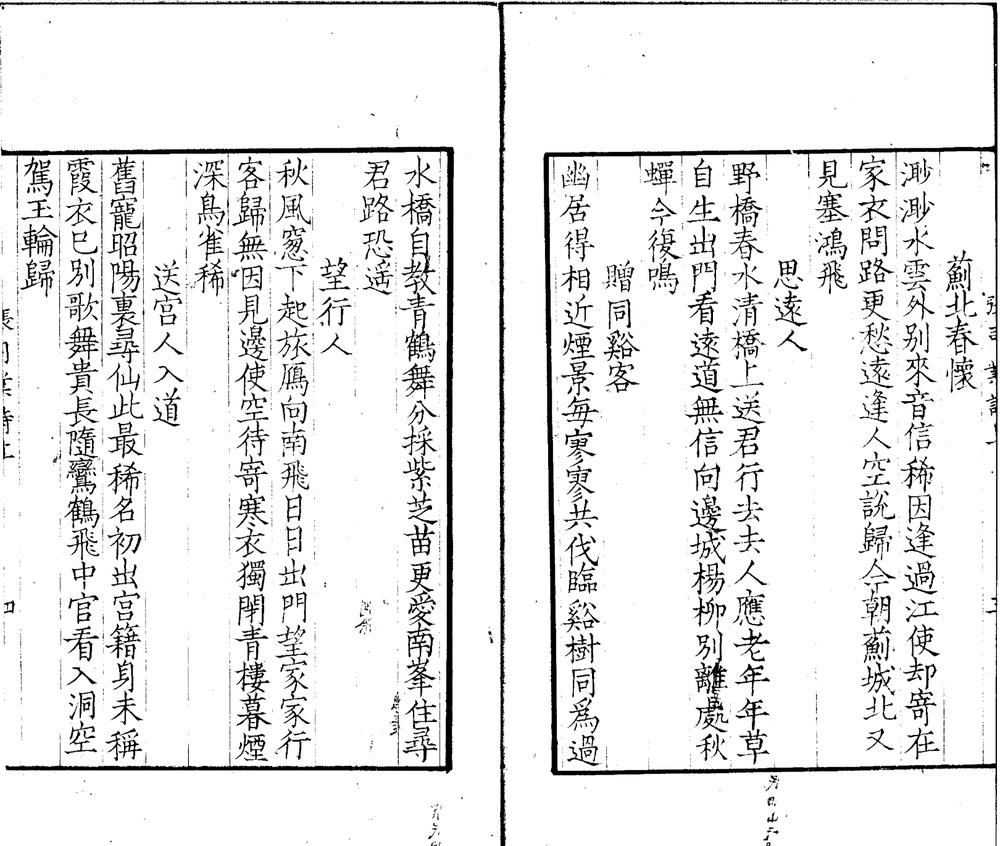 薊北春懷
渺渺水雲外别來音信稀因逢過江使却寄在
家衣問路更愁遠逢人空說歸今朝薊城北又
見塞鴻飛
思遠人
野橋春水清橋上送君行去去人應老年年草
自生出門看遠道無信向邊城楊柳别離處秋
蟬今復鳴
贈同谿客
幽居得相近煙景每寥寥共伐臨谿樹同爲過
水橋自教青鶴舞分採紫芝苗更愛南峯住尋
君路恐遥
望行人
秋風窓下起旅鴈向南飛日日出門望家家行
客歸無因見邊使空待寄寒衣獨閉青樓暮煙
深鳥雀稀
送宫人入道
舊寵昭陽裏尋仙此最稀名初出宫籍身未稱
霞衣已别歌舞貴長隨鸞鶴飛中官看入洞空
駕玉輪歸